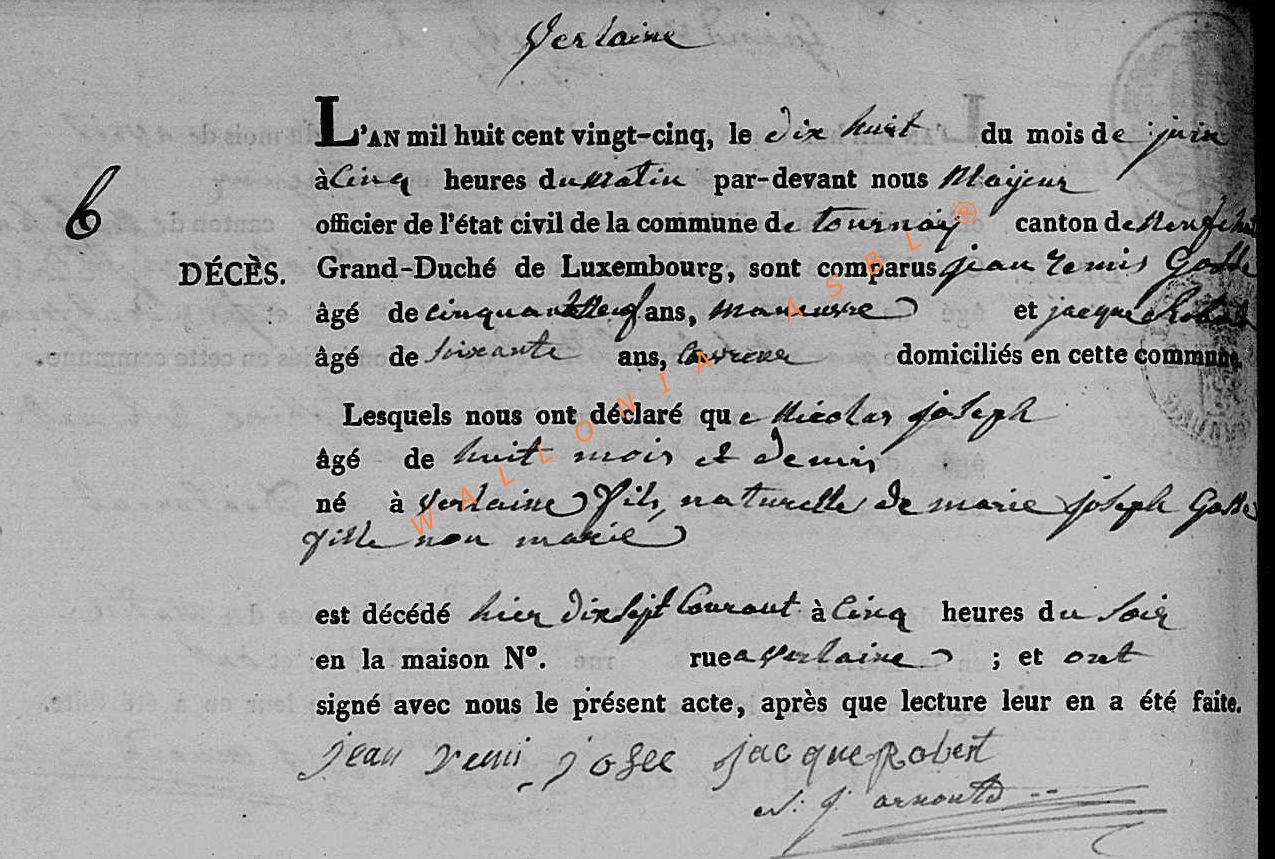 Verlaine
L'AN mil huit cent vingt-cinq, le dix huit du mois de juin
à cinq heures du matin par-devant nous Majeur
6
officier de l'état civil de la commune de tournay canton de
DÉCÈS. Grand-Duché de Luxembourg, sont comparus jean remis
âgé de cinquante neuf ans, maneuvre et jacque
âgé de soixante ans, domiciliés en cette commune.
Lesquels nous ont déclaré que Nicolas joseph
âgé de huit mois et demis
né à Verlaine fils naturelle de marie joseph
fille non marié
est décédé hier dix sept Courant à cinq heures du soir
en la maison N°. rue a verlaine ; et ont
signé avec nous le présent acte, après que lecture leur en a été faite.
jean remi josee jacque Robert
N: J. arnould
WALLONIA ASBL ®